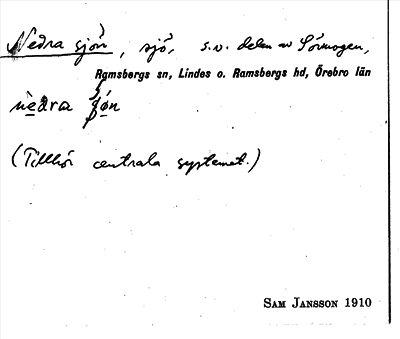 Nedra sjön, sjö, s.v. delen av Sörmogen,
Ramsbergs sn, Lindes o. Ramsbergs hd, Örebro län
nedra
(Tillhör centrala systemet.)
SAM JANSSON 1910